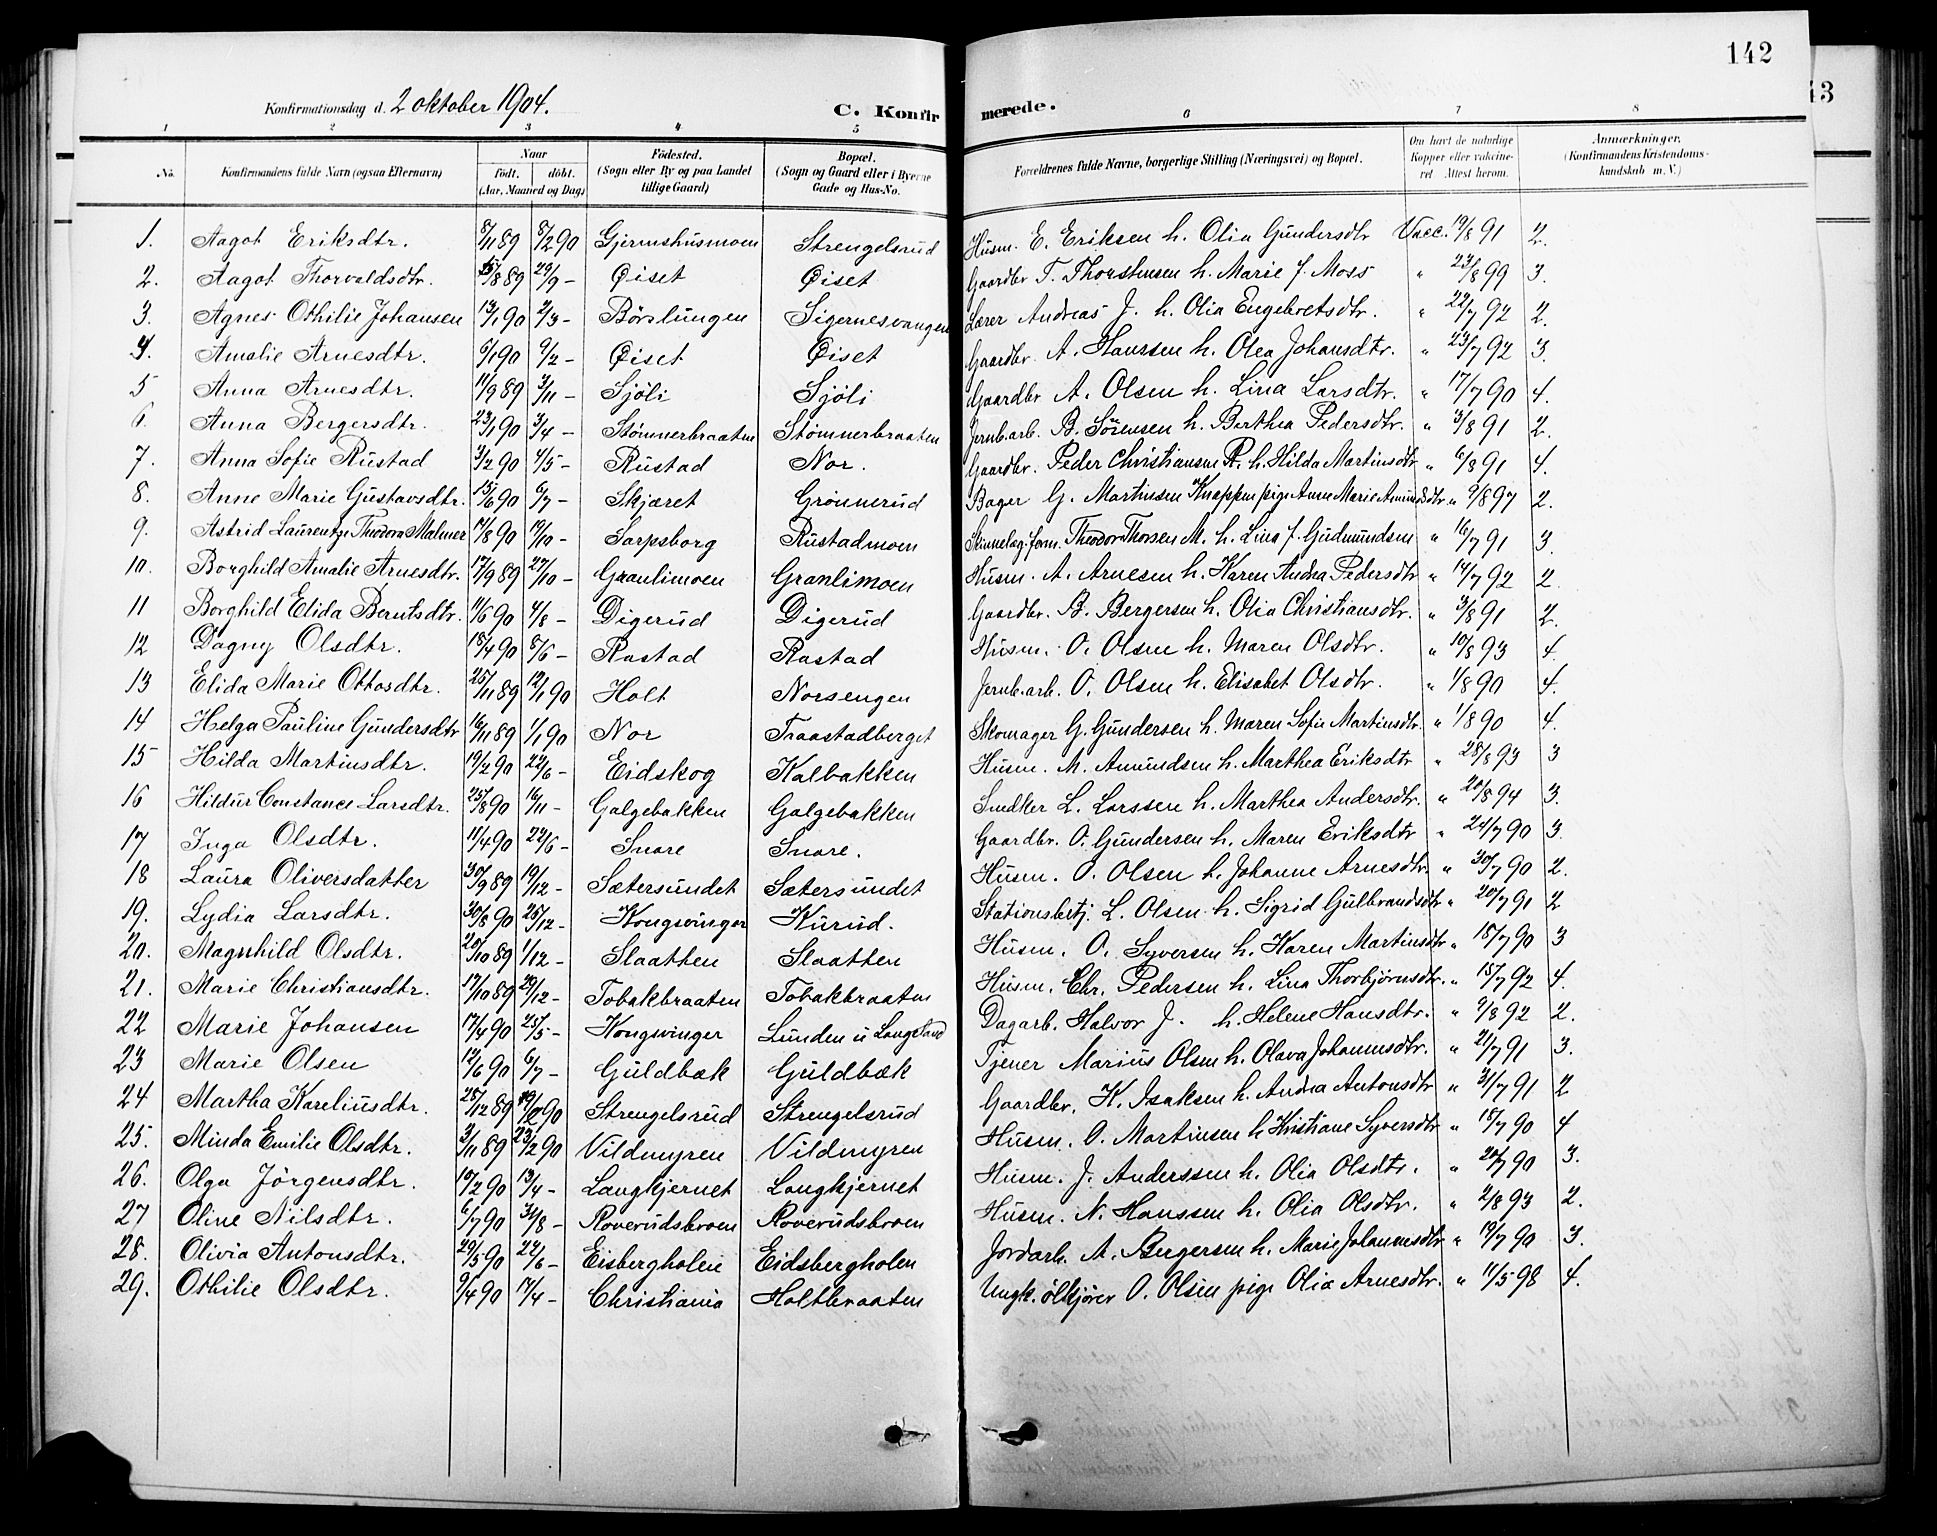 142
43
Konfirmationsdag d. 2 oktober 1904. C. Konfirmerede.
1 2 3 4 5 6 7 8
No. Konfirmandens fulde Navn (ogsaa Efternavn) Naar født. døbt. (Aar, Maaned og Dag) Fødested. (Sogn eller By og paa Landet tillige Gaard) Bopæl. (Sogn og Gaard eller i Byerne Gade og Hus-No. Forældrenes fulde Navne, borgerlige Stilling (Næringsvei) og Bopæl. Om havt de naturlige Kopper eller vaccineret Attest herom. Anmærkninger. (Konfirmandens Kristendomskundskab m. V.)
1. Aagot Eriksdtr. 8/11 89 8/2 90 Gjermshusmoen Strengelsrud Husm. E. Eriksen h. Olia Gundersdtr Vacc. 19/8 91 2.
2. Aagot Thorvaldsdtr. 15/8 89 29/9 - Øiset Øiset Gaardbr T. Thorstensen h. Marie f. Moss " 23/8 99 3.
3. Agnes Othilie Johansen 13/1 90 2/3 - Børslungen Sigernesvangen Lærer Andreas J. h. Olia Engebretsdtr. " 22/7 92 2.
4. Amalie Arnesdtr. 6/1 90 9/2 - Øiset Øiset Gaardbr. A. Hanssen h. Olea Johansdtr. " 23/7 92 3.
5 Anna Arnesdtr. 11/9 89 3/11 - Sjöli Sjöli Gaardbr A. Olsen h. Lina Larsdtr. " 17/7 90 4.
6. Anna Bergersdtr. 23/1 90 3/4 - Stömnerbraaten Stömnerbraaten Jernb.arb. B. Sörensen h. Berthea Pedersdtr. " 3/8 91 2.
7. Anna Sofie Rustad 3/2 90 4/5 - Rustad Nor. Gaardbr. Peder Christiansen R. h. Hilda Martinsdtr " 6/8 91 4.
8. Anne Marie Gustavsdtr. 15/6 90 6/7 - Skjæret Grönnerud Bager G. Martinsen Knappen pige Anne Marie Amundsdtr " 9/8 97 2.
9. Astrid Laurentze Theodora Malmer 17/8 90 19/10 - Sarpsborg Rustadmoen Skinnelæg.form. Theodor Thorsen M. h. Lina f. Gudmundsen " 16/7 91 3.
10. Borghild Amalie Arnesdtr. 17/9 89 27/10 - Granlimoen Granlimoen Husm. A. Arnesen h. Karen Andrea Pedersdtr " 14/7 92 2.
11 Borghild Elida Berntsdtr. 11/6 90 4/8 - Digerud Digerud Gaardbr. B. Bergersen h. Olia Christiansdtr. " 3/8 91 2.
12 Dagny Olsdtr. 18/4 90 8/6 - Rastad Rastad Husm. O. Olsen h. Maren Olsdtr. " 10/8 93 4.
13 Elida Marie Ottosdtr. 25/11 89 12/1 90 Holt Norsengen Jernb.arb. O. Olsen h. Elisabet Olsdtr. " 1/8 90 4.
14 Helga Pauline Gundersdtr 16/11 89 1/1 90 Nor Traastadberget Skomager G. Gundersen h. Maren Sofie Martinsdtr. " 1/8 90 4.
15 Hilda Martinsdtr. 19/2 90 22/6 - Eidskog Kalbakken Husm. M. Amundsen h. Marthea Eriksdtr " 28/8 93 3
16 Hildur Constance Larsdtr. 25/8 90 16/11 - Galgebakken Galgebakken Snedker L. Larssen h. Marthea Andersdtr. " 20/8 94 3.
17 Inga Olsdtr. 11/4 90 22/6 - Snare Snare. Gaardbr. O. Gundersen h. Maren Eriksdtr " 24/7 90 3.
18 Laura Oliversdatter 30/9 89 19/12 - Sætersundet Sætersundet Husm. O. Olsen h. Johanne Arnesdtr. " 30/7 90 2.
19. Lydia Larsdtr. 30/8 90 25/12 - Kongsvinger Kurud. Stationsbetj. L. Olsen h. Sigrid Gulbrandsdtr " 20/7 91 2
20. Magnhild Olsdtr. 20/10 89 1/12 - Slaatten Slaatten Husm. O. Syversen h. Karen Martinsdtr " 18/7 90 3
21. Marie Christiansdtr. 17/10 89 29/12 - Tobakbraaten Tobakbraaten Husm. Chr. Pedersen h. Lina Thorbjörnsdtr. " 15/7 92 4.
22 Marie Johansen 17/4 90 25/5 - Kongsvinger Lunden u Langeland Dagarb. Halvor J. h. Helene Hansdtr. " 9/8 92 2.
23 Marie Olsen 12/6 90 6/7 - Guldbæk Guldbæk Tjener Marius Olsen h. Olava Johannesdtr. " 21/7 91 3.
24 Martha Kareliusdtr. 28/12 89 90 Strengelsrud Strengelsrud Gaardbr. K. Isaksen h. Andrea Antonsdtr " 31/7 91 2
25. Minda Emilie Olsdtr. 3/11 89 23/2 90 Vildmyren Vildmyren Husm. O. Martinsen h Kristiane Syversdtr " 18/7 90 4
26. Olga Jörgensdtr. 10/2 90 13/4 - Langkjernet Langkjernet Husm. J. Anderssen h. Olia Olsdtr. " 20/7 90 3.
27 Oline Nilsdtr. 6/7 90 31/8 - Roverudsbroen Roverudsbroen Husm. N. Hanssen h. Olia Olsdtr. " 2/8 93 2.
28. Olivia Antonsdtr. 29/5 90 22/6 - Eisbergholen Eidsbergholen Jordarb. A. Bergersen h. Marie Johannesdtr " 19/7 90 3.
29. Othilie Olsdtr. 9/4 90 17/4 - Christiania Holtbraaten Ungk. ölkjörer O. Olsen pige Olia Arnesdtr. " 11/5 98 4.